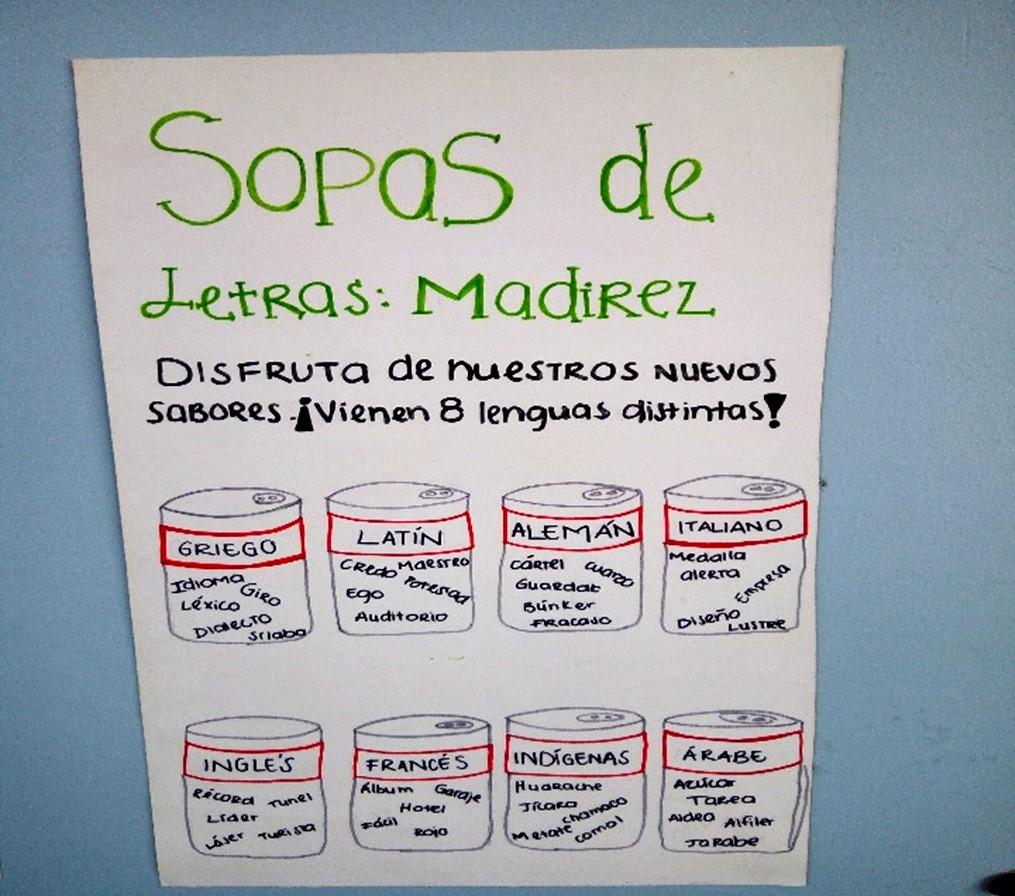 Sopas de
Letras: Madirez
Disfruta de nuestros nuevos
sabores. ¡Vienen 8 lenguas distintas!
GRIEGO
Idioma
Giro
Léxico
Dialecto
Sílaba
LATÍN
Credo Maestro
Ego Potestad
Auditorio
ALEMÁN
Cártel Cuarzo
Guardar
Búnker
Fracaso
ITALIANO
Medalla
Alerta
Empresa
Diseño
Lustre
INGLÉS
Récord Tunel
Líder
Láser Turista
FRANCÉS
Álbum Garaje
Hotel
Fácil
Rojo
INDÍGENAS
Huarache
Jícara chamaco
Metate comal
ÁRABE
Azúcar
Tarea
Aldea Alfiler
Jarabe